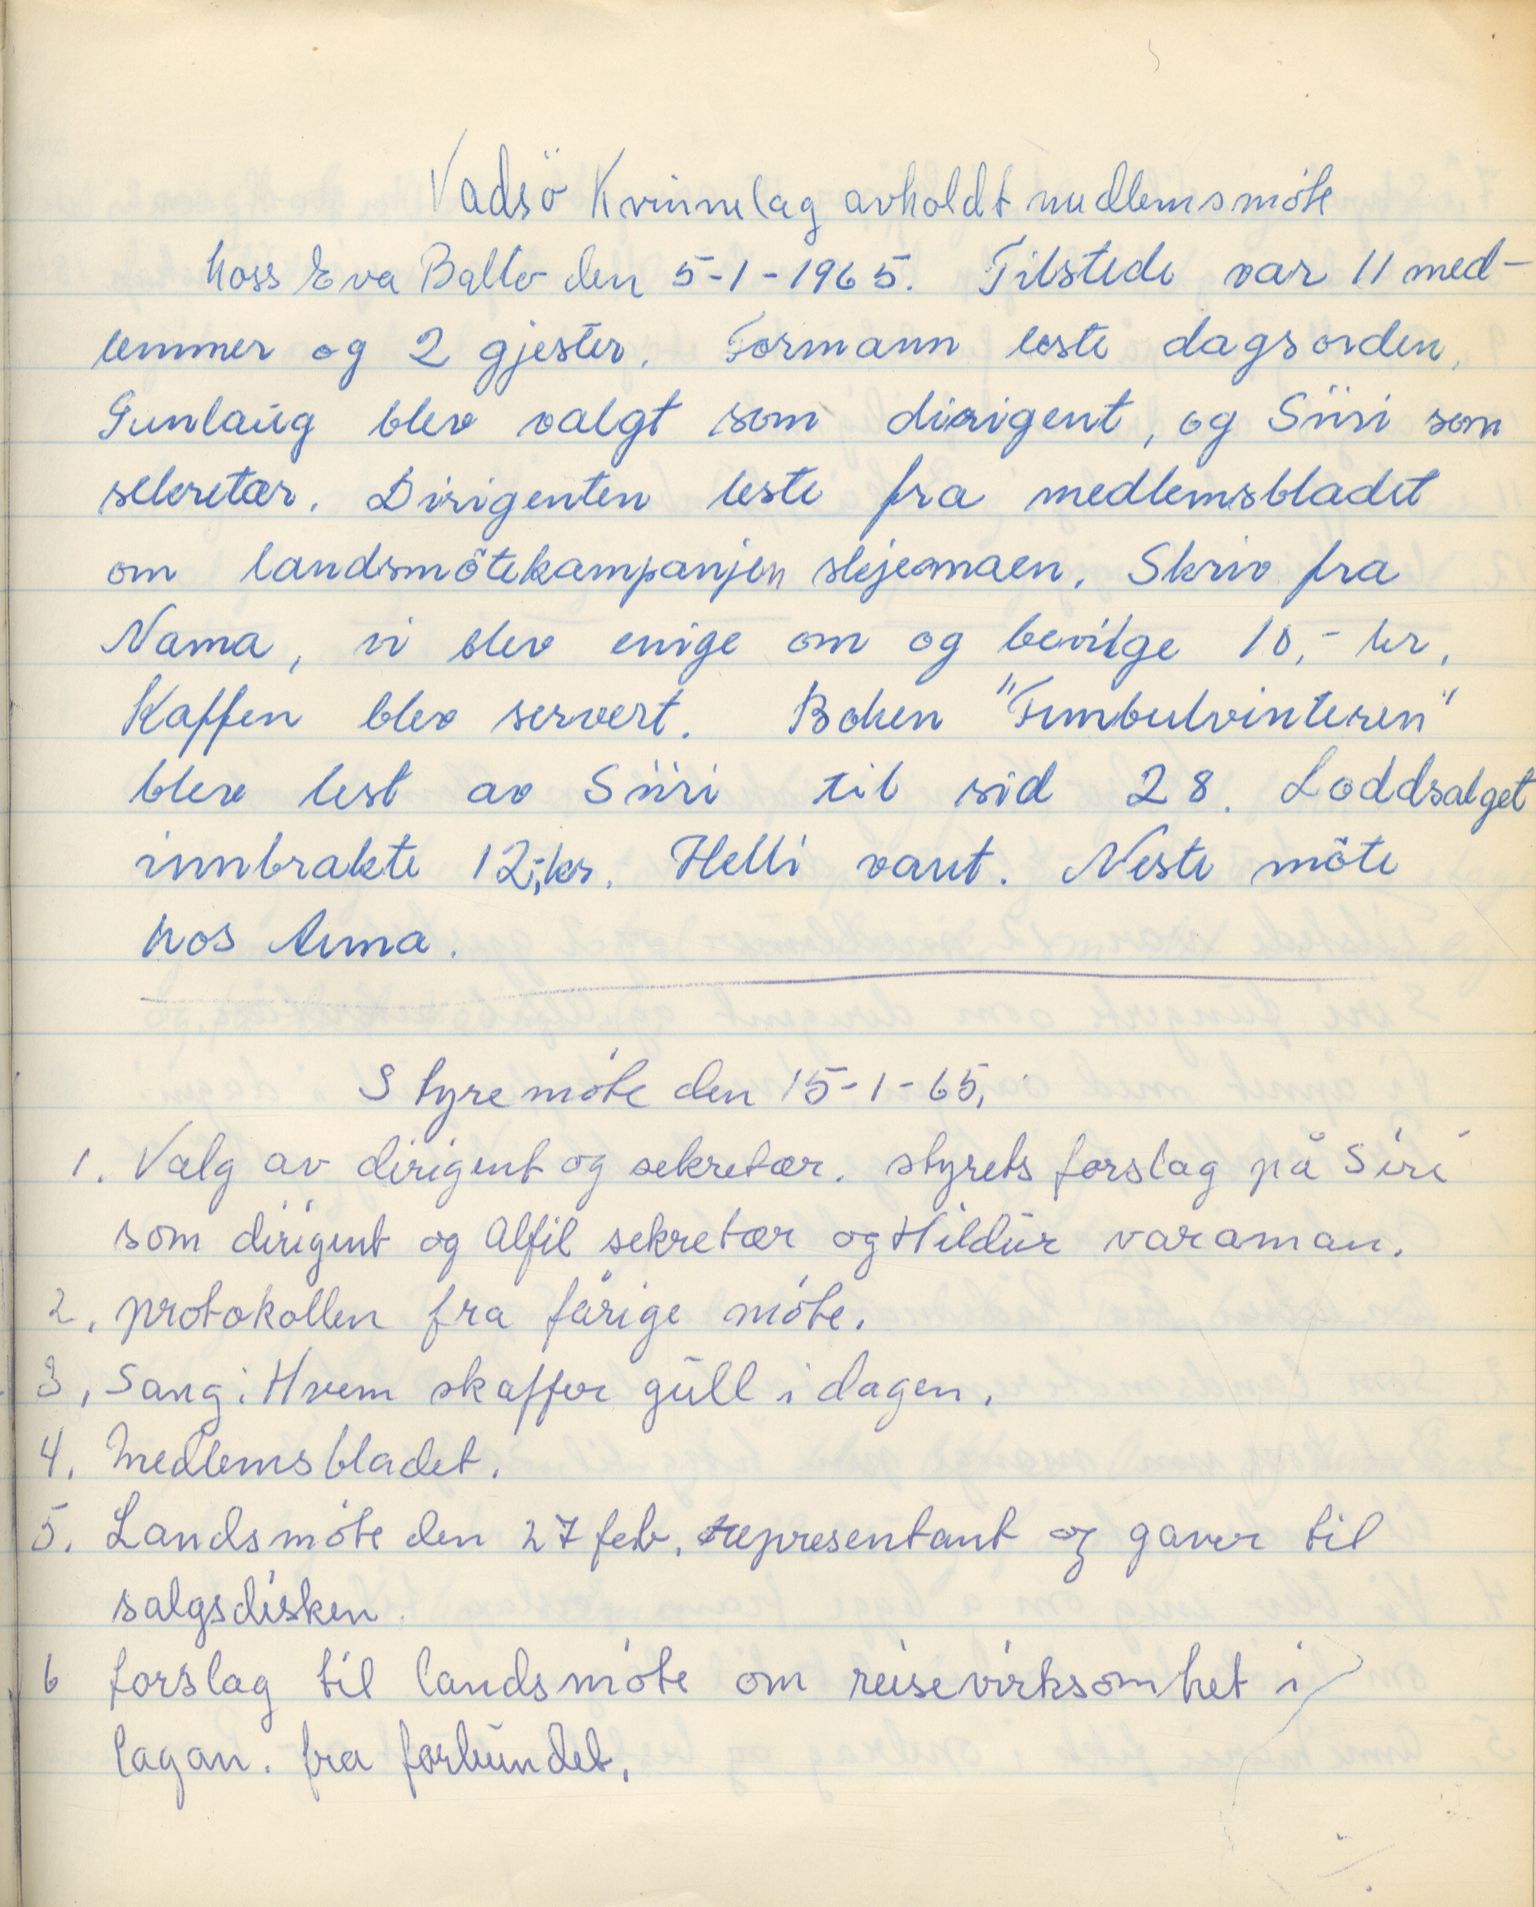 Vadsö Kvinnelag avholdt medlemsmöte
hoss Eva Ballo den 5-1-1965. Tilstede var 11 med-
lemmer og 2 gjester. Formann leste dagsorden,
Gunlaug blev valgt som dirigent, og Siiri som
sekretær. Dirigenten leste fra medlemsbladet
om landsmötekampanjen skjemaen. Skriv fra
Nama, vi blev enige om og bevilge 10,- kr,
Kaffen blev servert. Boken "Fimbulvinteren"
blev lest av Siiri til sid 28. Loddsalget
innbrakte 12,-kr. Helli vant. Neste möte
hos Anna.
Styremöte den 15-1-65,
1. Valg av dirigent og sekretær. styrets forslag på Siri
som dirigent og Alfil sekretær og Hildur varaman.
2. protokollen fra fårige möte.
3, Sang: Hvem skaffer gull i dagen,
4, Medlemsbladet.
5. Landsmöte den 27 feb, representant og gaver til
salgsdisken.
6 forslag til landsmöte om reisevirksomhet i
lagan. fra forbundet,